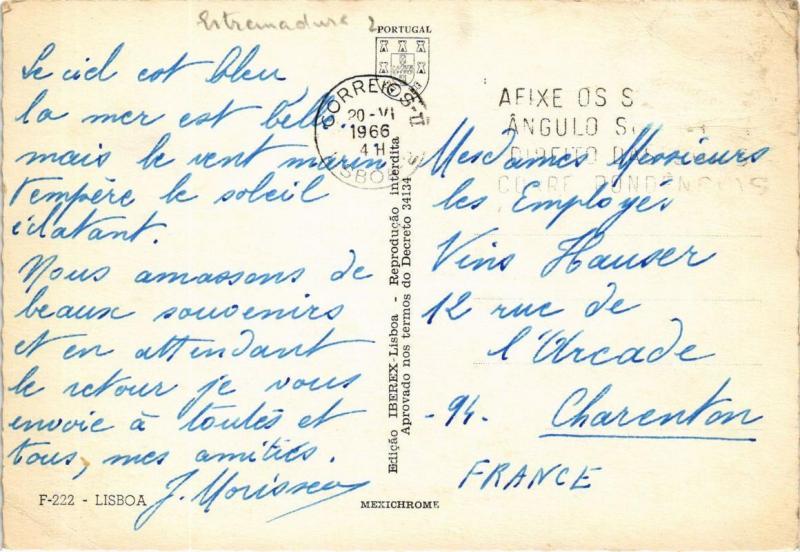 Estremadura 2
PORTUGAL
Le ciel est bleu
la mer est belle.
mais le vent marin
tempère le soleil
éclatant.
Nous amassons de
beaux souvenirs
et en attendant
le retour je vous
envoie à toutes et
tous, mes amitiés.
J. Morisseau
F-222 - LISBOA
CORREIOS
20-VI
1966
4 H
LISBOA
Edição IBEREX-Lisboa - Reprodução interdita
Aprovado nos termos do Decreto 34134
MEXICHROME
AFIXE OS S
ÂNGULO S
DIREITO DA
CORRESPONDÊNCIAS
Mesdames Messieurs
les Employés
Vins Hauser
12 rue de
l'Arcade
-94- Charenton
FRANCE